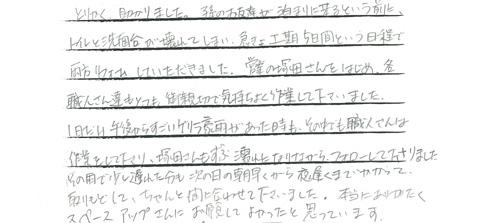 とにかく、助かりました。孫のお友達が泊まりに来るという前に、
トイレと洗面台が壊れてしまい、急きょ工期5日間という日程で
両方リフォームしていただきました。営業の塚田さんをはじめ、各
職人さん達もとても御親切で気持ちよく作業して下さいました。
1日だけ午後からすごいゲリラ豪雨があった時も、その中でも職人さんは
作業をして下さり、塚田さんもずぶ濡れになりながらフォローして下さりました
その雨で少し遅れた分も次の日の朝早くから夜遅くまでかかって、
取りもどして、ちゃんと間に合わせて下さいました。本当にありがたく
スペースアップさんにお願いしてよかったと思っています。